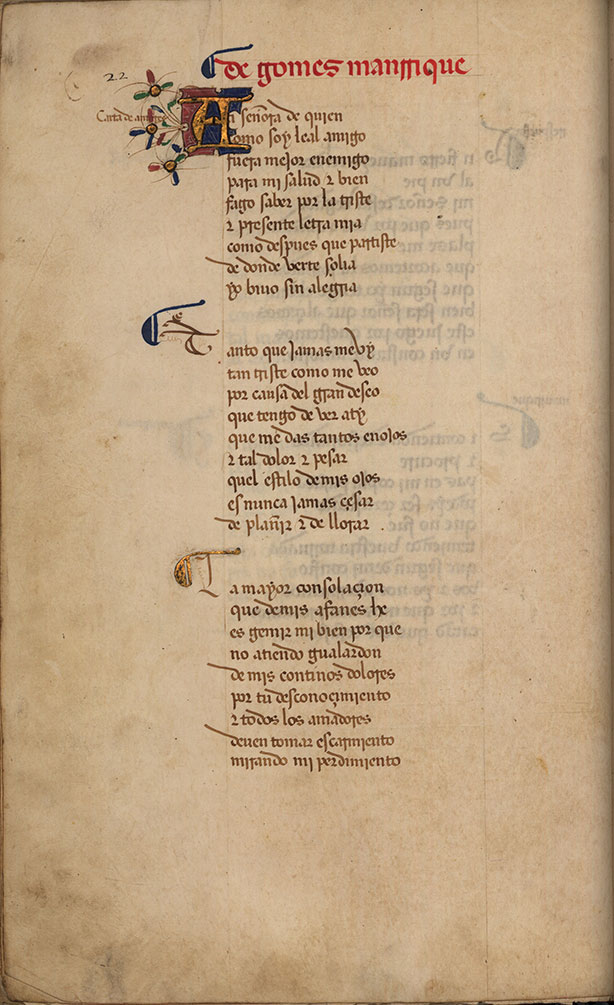 de gomes manrrique
22
Carta de amores
A ti señora de quien
como soy leal amigo
fuera mejor enemigo
para mi salud ⁊ bien
fago saber por la triste
⁊ presente letra mia
como despues que partiste
de donde verte solia
yo biuo sin alegria
Tanto que jamas me vy
tan triste como me veo
por causa del gran deseo
que tengo de ver a ty
que me das tantos enojos
⁊ tal dolor ⁊ pesar
quel estilo de mis ojos
es nunca jamas çesar
de plañir ⁊ de llorar .
La mayor consolaçion
que de mis afanes he
es gemir mi bien por que
no atiendo gualardon
de mis continos dolores
por tu desconoçimiento
⁊ todos los amadores
deuen tomar escarmiento
mirando mi perdimiento